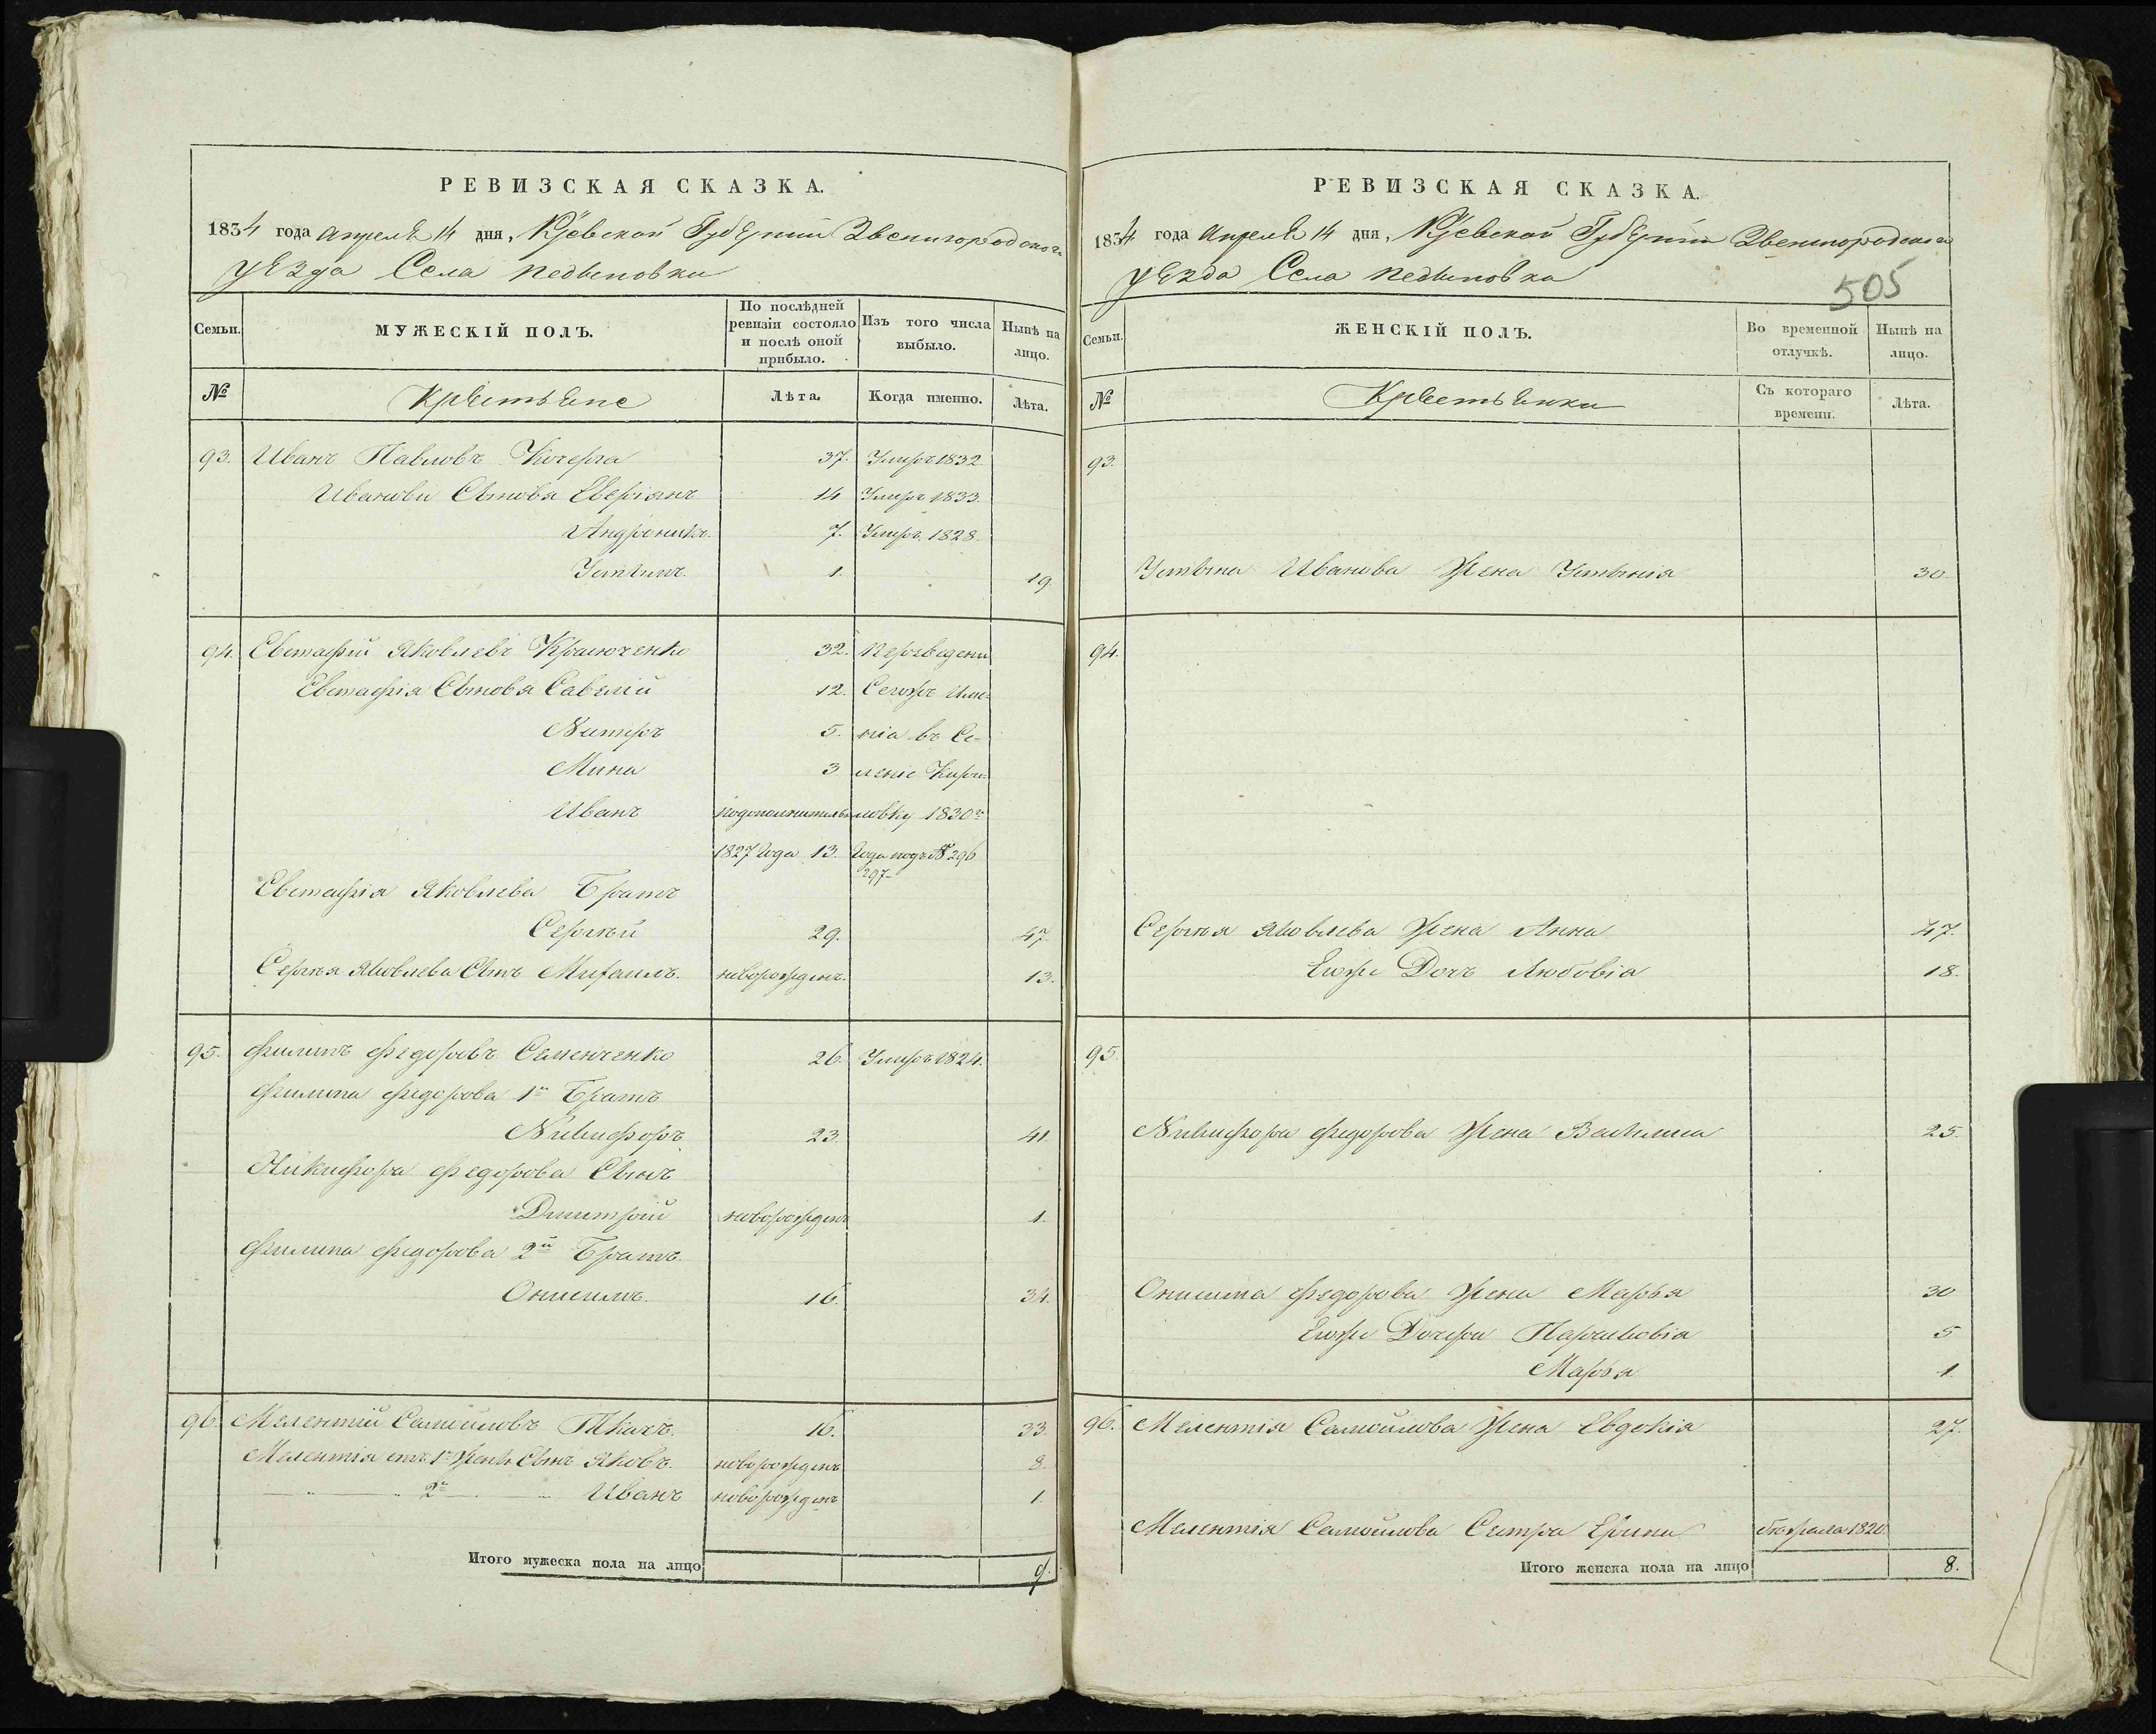 РЕВИЗСКАЯ СКАЗКА.
1834 года Апреля 14 дня, Кіевской Губерніи Звенигородского
уезда Села Педыновки
Семьи.
МУЖЕСКІЙ ПОЛЪ.
По послѣдней
ревизіи состояло
и послѣ оной
прибыло.
Изъ того числа
выбыло.
Нынѣ на
лицо.
№
Крестьяне
Лѣта.
Когда именно.
Лѣта.
93. Иванъ Павловъ Кочерга 37. Умеръ 1832
Ивановы Сыновья 14 Умеръ 1833
Андроникъ. 7. Умеръ 1828.
Устинъ. 1. 19.
94. Евстафій Яковлевъ 32. Переведены
Евстафія Сыновья Савелій 12. Сегожъ Име-
5. нія въ Се-
Мина 3. леніе Кири-
Иванъ ловку 1830го
1827 Года 13. Года подъ № 296
297-
Евстафія Яковлева Братъ
Сергѣй 29. 47.
Сергѣя Яковлева Сынъ Михаилъ. новорожденъ. 13.
95. Филипъ Федоровъ Семенченко 26. Умеръ 1824.
Филипа Федорова 1й Братъ
Никифоръ 23. 41.
Никифора Федорова Сынъ
Дмитрій новорожденъ 1.
Филипа Федорова 2й Братъ.
Онисимъ. 16. 34.
96. Мелентій Самойловъ Ткачъ. 16. 33.
Мелентія отъ 1й Жены Сынъ Яковъ. новорожденъ 8.
2й Иванъ новорожденъ 1.
Итого мужеска пола на лицо 9.
РЕВИЗСКАЯ СКАЗКА.
1834 года Апреля 14 дня, Кіевской Губерніи Звенигородского
уезда Села Педыновка
505
Семьи.
ЖЕНСКІЙ ПОЛЪ.
Во временной
отлучкѣ.
Нынѣ на
лицо.
№
Крестьянки
Съ котораго
времени.
Лѣта.
93.
Устина Иванова Жена Устинія 30
94.
Сергѣя Яковлева Жена Анна 47.
Егоже Дочъ Любовія 18.
95.
Никифора Федорова Жена Василиса 25.
Онисима Федорова Жена Марья 30
Егоже Дочери Парасковія 5
Марья 1
96. Мелентія Самойлова Жена Евдокія 27.
Мелентія Самойлова Сестра Ерина 1820
Итого женска пола на лицо 8.